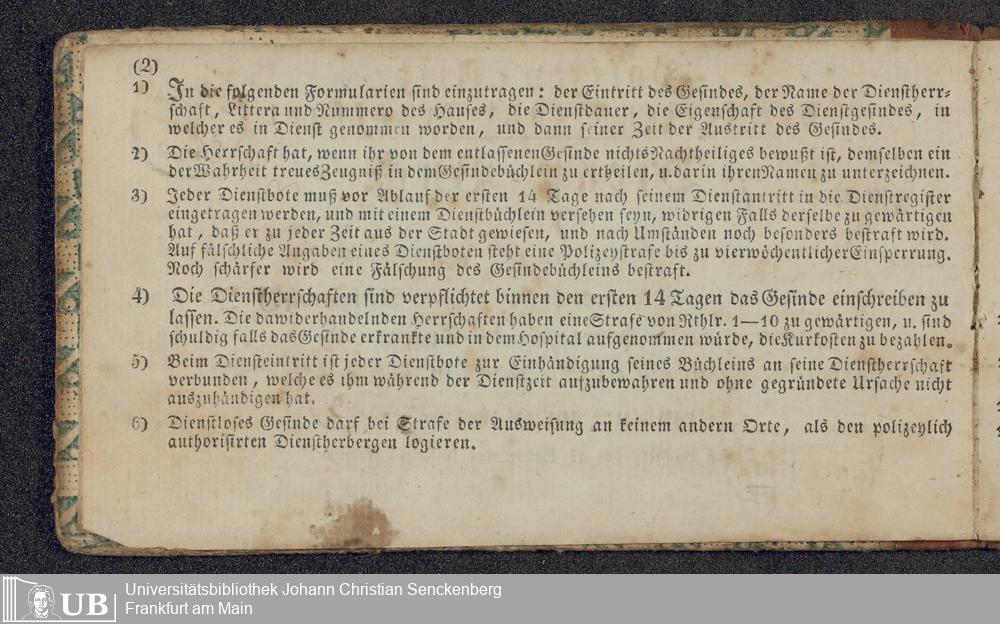 (2)
1) In die folgenden Formularien sind einzutragen: der Eintritt des Gesindes, der Name der Dienstherr-
schaft, Littera und Nummero des Hauses, die Dienstdauer, die Eigenschaft des Dienstgesindes, in
welcher es in Dienst genommen worden, und dann seiner Zeit der Austritt des Gesindes.
2) Die Herrschaft hat, wenn ihr von dem entlassenen Gesinde nichts Nachtheiliges bewußt ist, demselben ein
der Wahrheit treues Zeugniß in dem Gesindebüchlein zu ertheilen, u. darin ihren Namen zu unterzeichnen.
3) Jeder Dienstbote muß vor Ablauf der ersten 14 Tage nach seinem Dienstantritt in die Dienstregister
eingetragen werden, und mit einem Dienstbüchlein versehen seyn, widrigen Falls derselbe zu gewärtigen
hat, daß er zu jeder Zeit aus der Stadt gewiesen, und nach Umständen noch besonders bestraft wird.
Auf fälschliche Angaben eines Dienstboten steht eine Polizeystrafe bis zu vierwöchentlicher Einsperrung.
Noch schärfer wird eine Fälschung des Gesindebüchleins bestraft.
4) Die Dienstherrschaften sind verpflichtet binnen den ersten 14 Tagen das Gesinde einschreiben zu
lassen. Die dawiderhandelnden Herrschaften haben eine Strafe von Rthlr. 1—10 zu gewärtigen, u. sind
schuldig falls das Gesinde erkrankte und in dem Hospital aufgenommen würde, die Kurkosten zu bezahlen.
5) Beim Diensteintritt ist jeder Dienstbote zur Einhändigung seines Büchleins an seine Dienstherrschaft
verbunden, welche es ihm während der Dienstzeit aufzubewahren und ohne gegründete Ursache nicht
auszuhändigen hat.
6) Dienstloses Gesinde darf bei Strafe der Ausweisung an keinem andern Orte, als den polizeylich
authorisirten Dienstherbergen logieren.
UB
Universitätsbibliothek Johann Christian Senckenberg
Frankfurt am Main